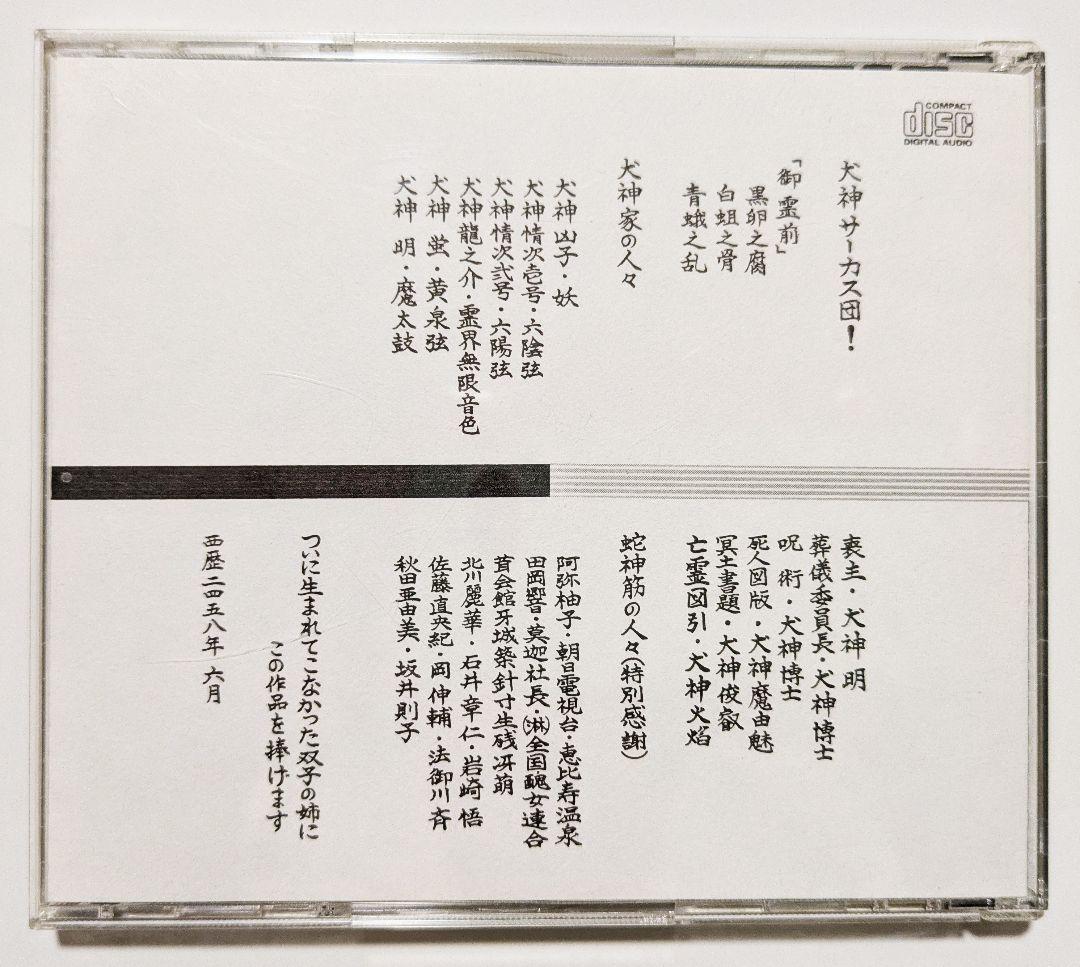 COMPACT
disc
DIGITAL AUDIO
犬神サーカス団!
「御霊前」
黒卵之腐
白蛆之骨
青蛾之乱
犬神家の人々
犬神凶子・妖
犬神情次壱号・六陰弦
犬神情次弐号・六陽弦
犬神龍之介・霊界無限音色
犬神 蛍・黄泉弦
犬神 明・魔太鼓
喪主・犬神 明
葬儀委員長・犬神博士
呪 術・犬神博士
死人図版・犬神魔由魅
冥土書題・大神俊叡
亡霊図引・犬神火焔
蛇神筋の人々(特別感謝)
阿弥柚子・朝日電視台・恵比寿温泉
田岡響音・莫迦社長・㈱全国醜女連合
茸会館牙城築針寸生残冴萌
北川麗華・石井章仁・岩崎 悟
佐藤直央紀・岡 伸輔・法御川斉
秋田亜由美・坂井則子
ついに生まれてこなかった双子の姉に
この作品を捧げます
西暦二四五八年 六月